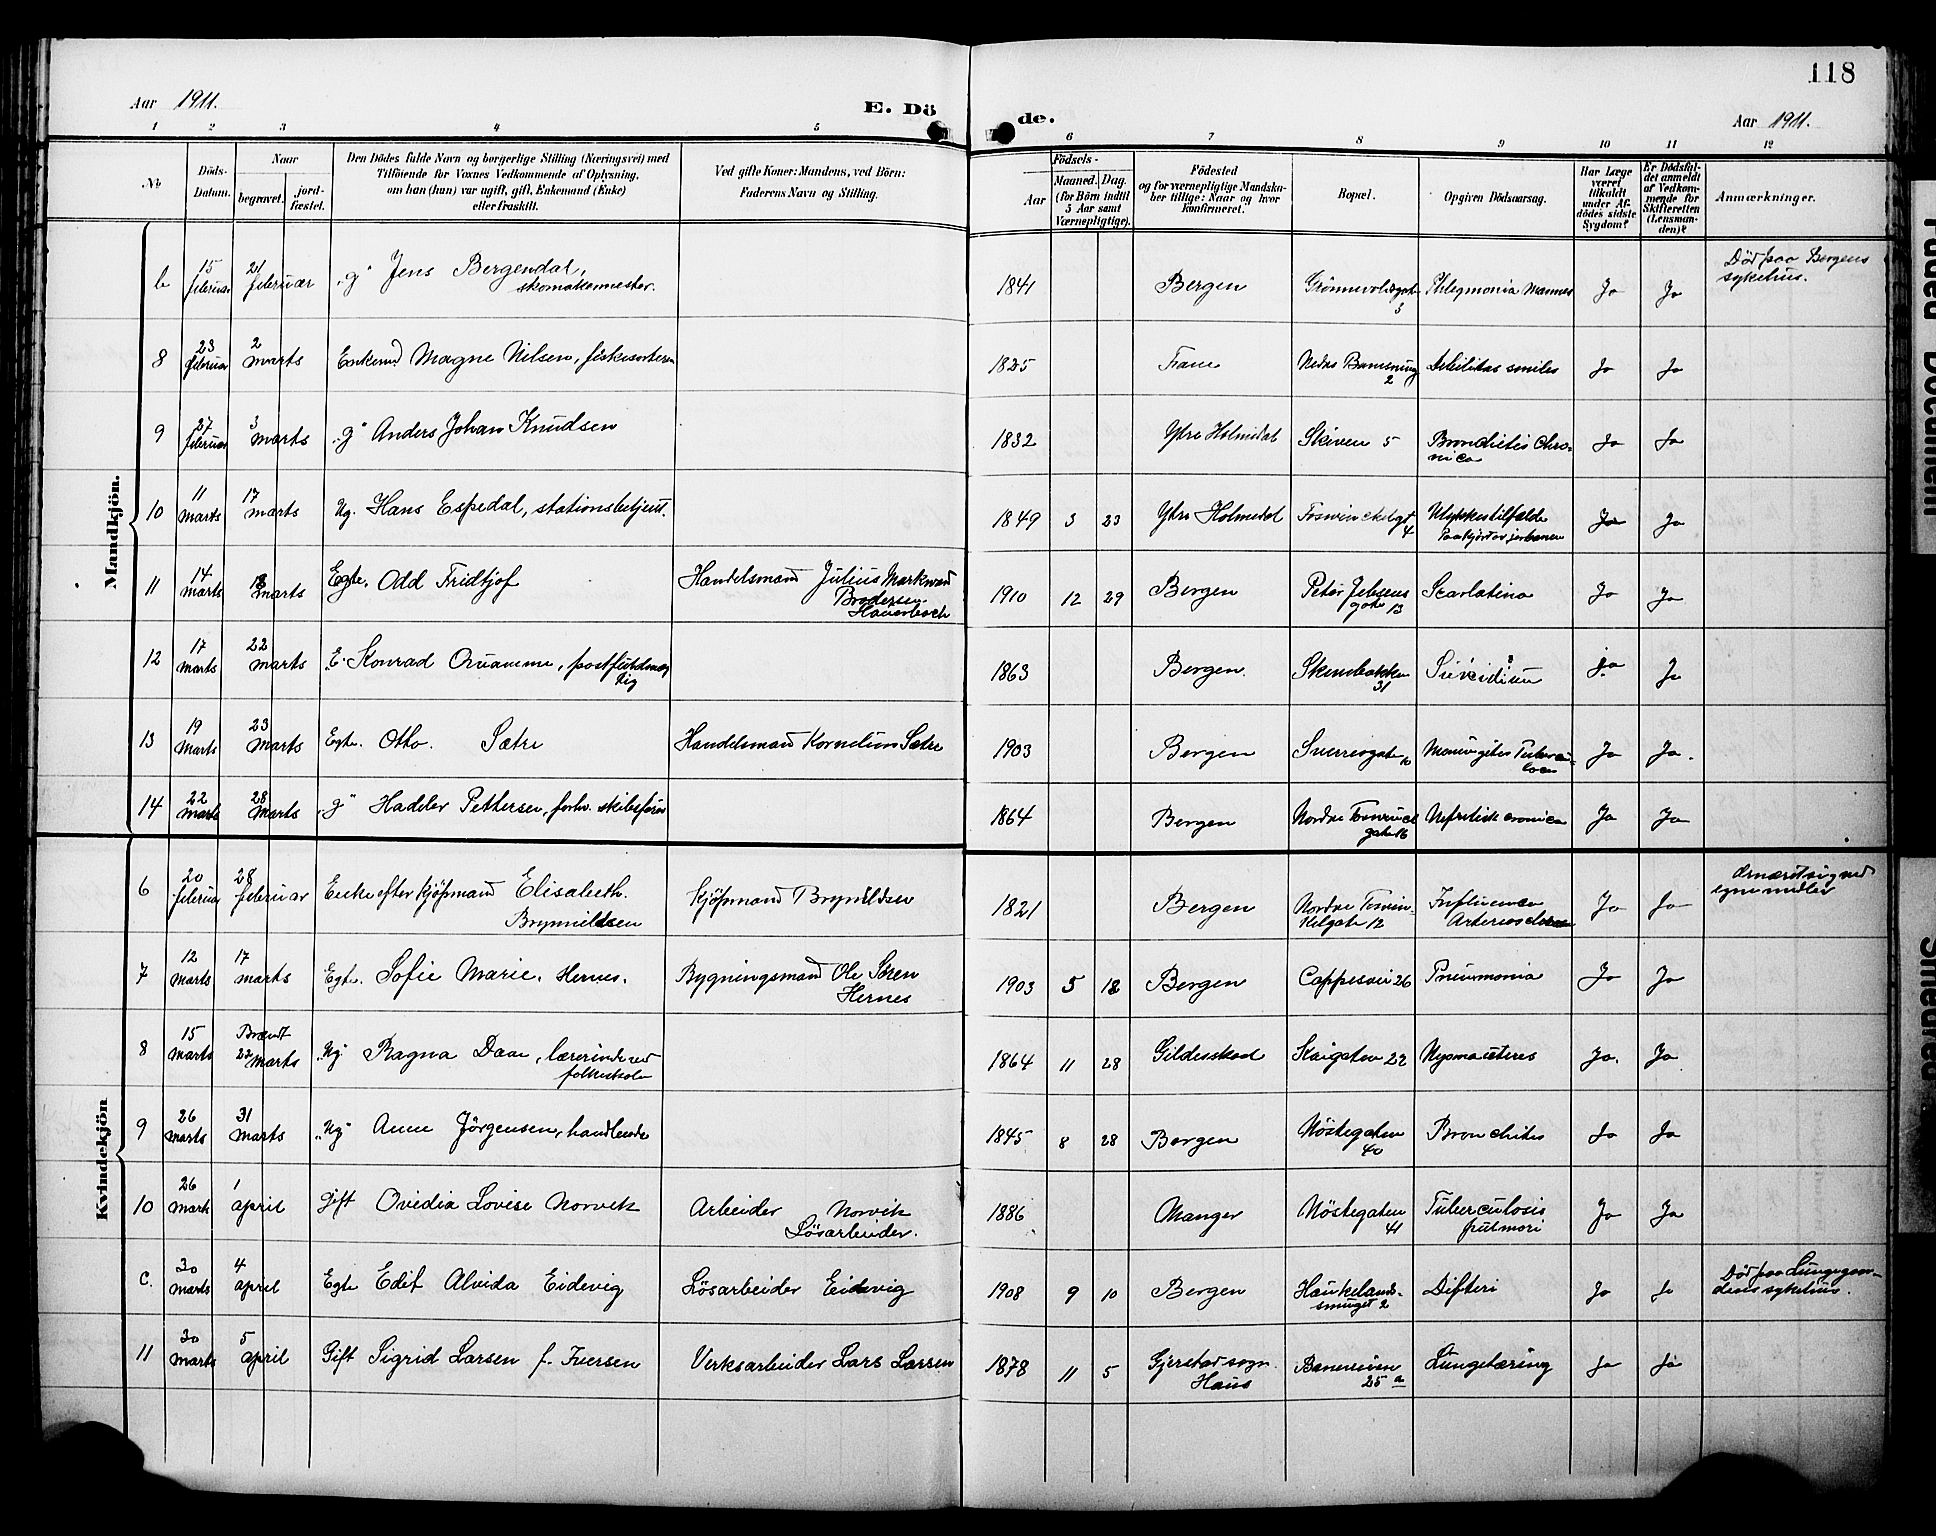 118
Aar 1911.
E. Dö de.
Aar 1911.
1 2 3 4 5 6 7 8 9 10 11 12
№
Döds-Datum.
Naar
begravet.
jord-fæstet.
Den Dödes fulde Navn og borgerlige Stilling (Næringsvei) med
Tilföiende for Voxnes Vedkommende af Oplysning,
om han (hun) var ugift, gift, Enkemand (Enke)
eller fraskilt.
Ved gifte Koner: Mandens, ved Börn:
Faderens Navn og Stilling.
Födsels-
Aar
Maaned.
Dag.
(for Börn indtil
5 Aar samt
Værnepligtige).
Födested
og for værnepligtige Mandska-
ber tillige: Naar og hvor
konfirmeret.
Bopæl.
Opgiven Dödsaarsag.
Har Læge
været
tilkaldt
under Af-
dödes sidste
Sygdom?
Er Dödsfal-
det anmeldt
af Vedkom-
mende for
Skifteretten
(Lensman-
den)?
Anmærkninger.
Mandkjön.
b 15 februar 21 februar "g" Jens Bergendal, skomakermester. 1841 Bergen 3 Phlegmonia Ja Ja Död paa Bergens sykehus.
8 23 februar 2 marts Enkemd Magne Nilsen, 1825 Fane 2 Debilitas senilis Ja Ja
9 27 februar 3 marts "g" Anders Johan Knudsen 1832 Ytre Holmedal Skiven 5 Bronchitis Chro-nica Ja Ja
10 11 marts 17 marts Ug. Hans Espedal, stationsbetjent. 1849 3 23 Ytre Holmedal 4 Ulykkestilfælde Ja Ja
11 14 marts 18 marts Egte. Odd Fridtjof Handelsmand Julius Markvard Brodersen Haverbeck 1910 12 29 Bergen Peter Jebsens gate 13 Scarlatina Ja Ja
12 17 marts 22 marts "E. Konrad 1863 Bergen. 31 Suicidium ja Ja
13 19 marts 23 marts Egte. Otto. Sætre Handelsmand Kornelius Sætre 1903 Bergen Sverresgate 10 Ja Ja.
14 22 marts 28 marts "g" Haddor Pettersen, forhv. skibsförer 1864 Bergen 16 Nefritisk cronica Ja Ja
Kvindekjön
6 20 februar 28 februar Enke efter kjöpmand Elisabeth. Brynnildsen Kjöpmand Brynildsen 1821 Bergen Nordre Fosvin-kelgate 12 Influenca Ja Ja
7 12 marts 17 marts Egte. Sofie Marie. Hernes. Bygningsmand Ole Sören Hernes 1903 5 18 Bergen Cappesvei 26 Pneumonia Ja Ja
8 15 marts Brændt 22 marts "Ug" Ragna Daae, lærerinde ved folkeskole 1864 11 28 Gildesskaal Kaigaten 22 Myoma uteris Ja. Ja
9 26 marts 31 marts "Ug" Anne Jörgensen, handlende 1845 8 28 Bergen Nöstegaten 40 Bronchites Ja Ja
10 26 marts 1 april Gift Ovedia Lovise Norvik Arbeider Norvik Lösarbeider. 1886 Manger Nöstegaten 41 Tuberculosis pulmori Ja Ja
c. 30 marts 4 april Egte Edit Alvida Eidevig Lösarbeider Eidevig 1908 9 10 Bergen Haukelands-smuget 2 Difteri Ja Ja Död paa Lungegaar-dens sykehus.
11 30 marts 5 april Gift Sigrid Larsen f. Iversen Verksarbeider Lars Larsen 1878 11 5 Gjerstad sogn. Haus Baneveien 25 a Lungetæring Ja Ja
Faded Document
Smeared